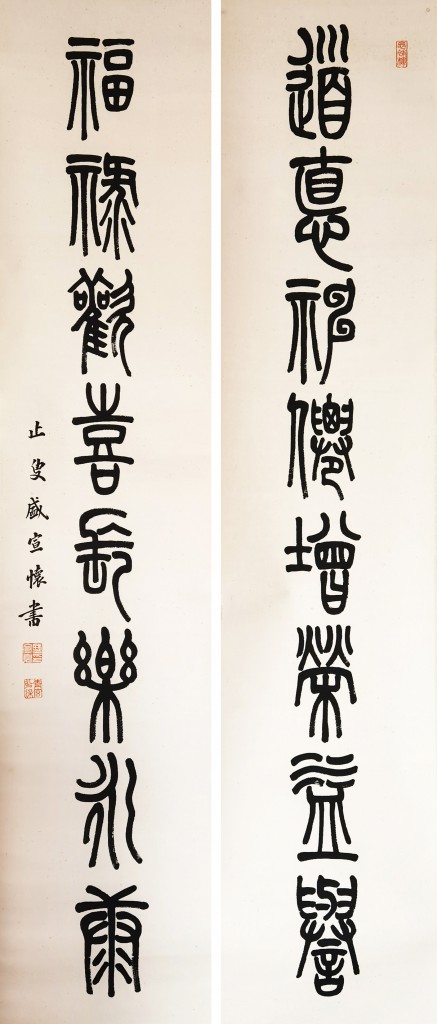 道悳神僊增榮益譽
福祿歡喜長樂永康
止叟盛宣懷書